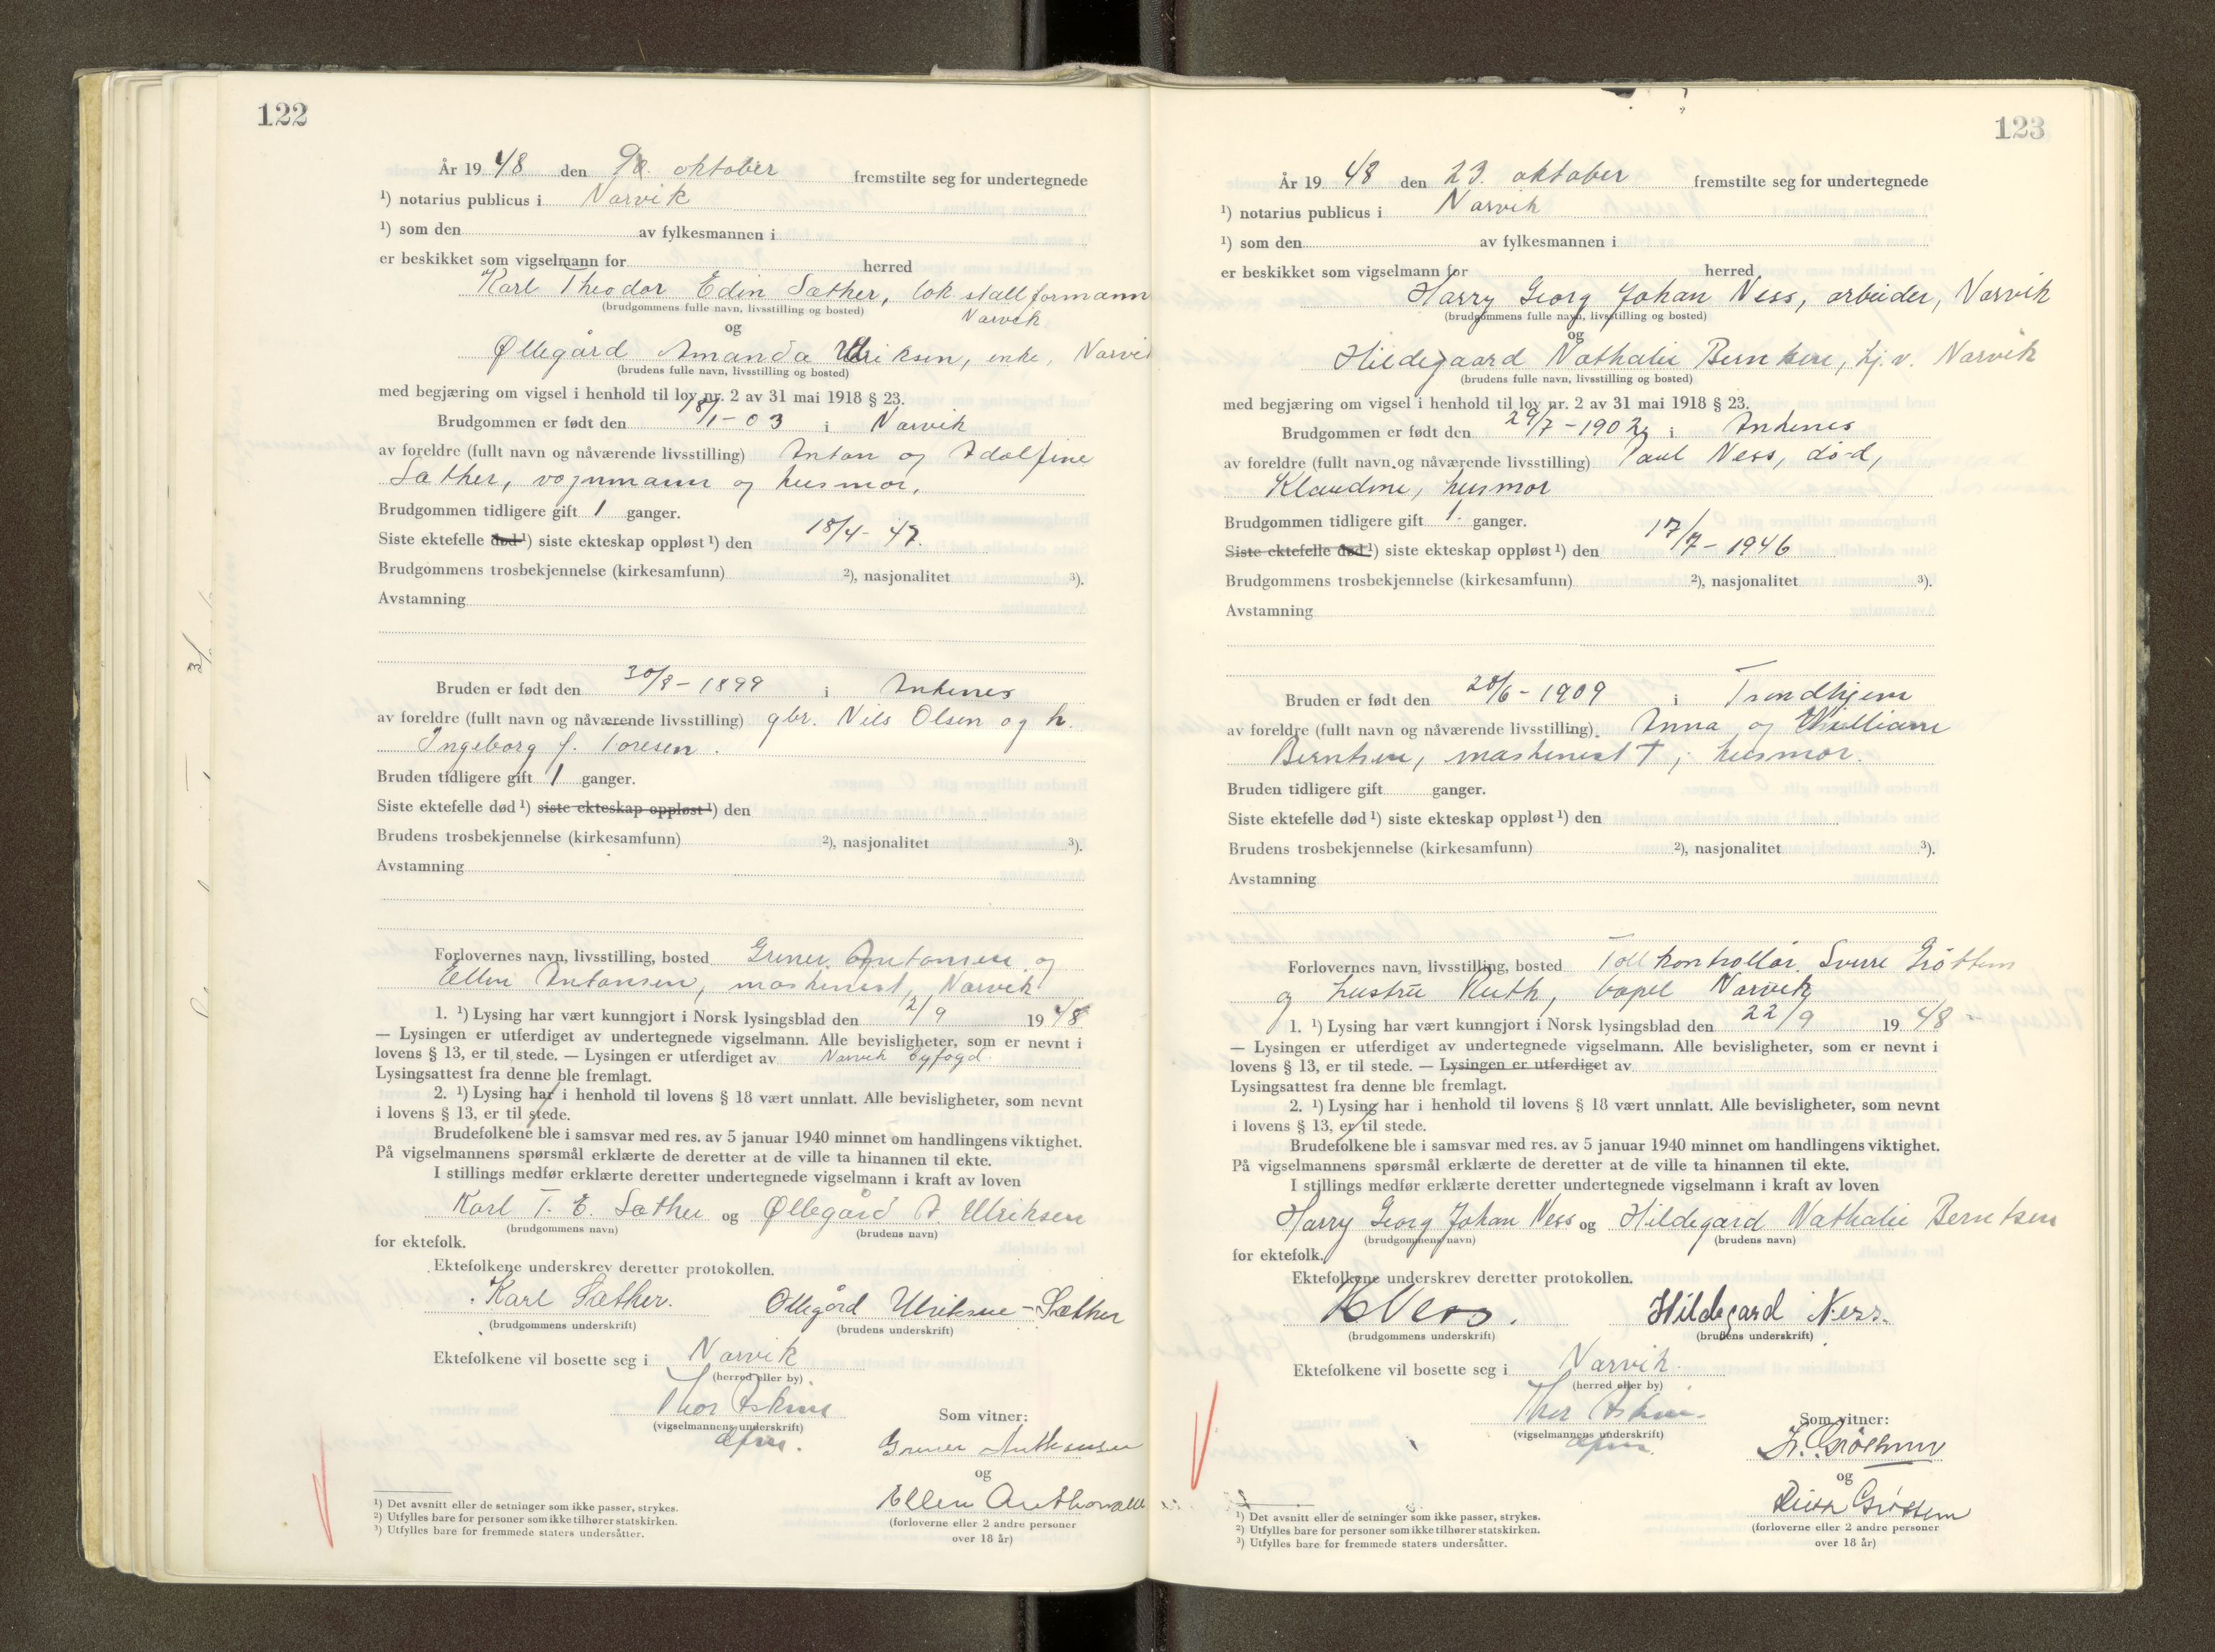 122
År 19 48 den 9. oktober fremstilte seg for undertegnede
¹) notarius publicus i Narvik
¹) som den av fylkesmannen i
er beskikket som vigselmann for herred
Karl Theodor Edin Sæther, lok stallformann
(brudgommens fulle navn, livsstilling og bosted) Narvik
og
Øllegård Amanda Ulriksen, enke, Narvik
(brudens fulle navn, livsstilling og bosted)
med begjæring om vigsel i henhold til lov nr. 2 av 31 mai 1918 § 23.
Brudgommen er født den 18/1-03 i Narvik
av foreldre (fullt navn og nåværende livsstilling) Anton og Adolfine
Sæther, vognmann og husmor.
Brudgommen tidligere gift 1 ganger.
Siste ektefelle død ¹) siste ekteskap oppløst ¹) den 18/4-47.
Brudgommens trosbekjennelse (kirkesamfunn) ²), nasjonalitet ³).
Avstamning
Bruden er født den 30/8-1899 i Ankenes
av foreldre (fullt navn og nåværende livsstilling) gbr. Nils Olsen og h.
Ingeborg f. Toresen.
Bruden tidligere gift 1 ganger.
Siste ektefelle død ¹) siste ekteskap oppløst ¹) den
Brudens trosbekjennelse (kirkesamfunn) ²), nasjonalitet ³).
Avstamning
Forlovernes navn, livsstilling, bosted Gruner Antonsen og
Ellen Antonsen, maskinist, Narvik
1. ¹) Lysing har vært kunngjort i Norsk lysingsblad den 2/9 19 48
— Lysingen er utferdiget av undertegnede vigselmann. Alle bevisligheter, som er nevnt i
lovens § 13, er til stede. — Lysingen er utferdiget av Narvik byfogd.
Lysingsattest fra denne ble fremlagt.
2. ¹) Lysing har i henhold til lovens § 18 vært unnlatt. Alle bevisligheter, som nevnt
i lovens § 13, er til stede.
Brudefolkene ble i samsvar med res. av 5 januar 1940 minnet om handlingens viktighet.
På vigselmannens spørsmål erklærte de deretter at de ville ta hinannen til ekte.
I stillings medfør erklærte deretter undertegnede vigselmann i kraft av loven
Karl T. E. Sæther og Øllegård A. Ulriksen
(brudgommens navn) (brudens navn)
for ektefolk.
Ektefolkene underskrev deretter protokollen.
Karl Sæther. Øllegård Ulriksen-Sæther
(brudgommens underskrift) (brudens underskrift)
Ektefolkene vil bosette seg i Narvik
(herred eller by)
Thor
(vigselmannens underskrift) Som vitner:
Gruner Anthonsen
og
Ellen Anthonsen
(forloverne eller 2 andre personer
over 18 år)
¹) Det avsnitt eller de setninger som ikke passer, strykes.
²) Utfylles bare for personer som ikke tilhører statskirken.
³) Utfylles bare for fremmede staters undersåtter.
123
År 19 48 den 23. oktober fremstilte seg for undertegnede
¹) notarius publicus i Narvik
¹) som den av fylkesmannen i
er beskikket som vigselmann for herred
Harry Georg Johan Ness, arbeider, Narvik
(brudgommens fulle navn, livsstilling og bosted)
og
Hildegaard Nathalie Berntsen, hj.v. Narvik
(brudens fulle navn, livsstilling og bosted)
med begjæring om vigsel i henhold til lov nr. 2 av 31 mai 1918 § 23.
Brudgommen er født den i Ankenes
av foreldre (fullt navn og nåværende livsstilling) Paul Ness, død,
Klaudine, husmor
Brudgommen tidligere gift 1. ganger.
Siste ektefelle død ¹) siste ekteskap oppløst ¹) den 17/7-1946
Brudgommens trosbekjennelse (kirkesamfunn) ²), nasjonalitet ³).
Avstamning
Bruden er født den 28/6-1909 i Trondhjem
av foreldre (fullt navn og nåværende livsstilling) Anna og William
Berntsen, maskinist †, husmor.
Bruden tidligere gift ganger.
Siste ektefelle død ¹) siste ekteskap oppløst ¹) den
Brudens trosbekjennelse (kirkesamfunn) ²), nasjonalitet ³).
Avstamning
Forlovernes navn, livsstilling, bosted Tollkontrollør Sverre Grøttem
og hustru Ruth, bopel Narvik
1. ¹) Lysing har vært kunngjort i Norsk lysingsblad den 22/9 19 48
— Lysingen er utferdiget av undertegnede vigselmann. Alle bevisligheter, som er nevnt i
lovens § 13, er til stede. — Lysingen er utferdiget av
Lysingsattest fra denne ble fremlagt.
2. ¹) Lysing har i henhold til lovens § 18 vært unnlatt. Alle bevisligheter, som nevnt
i lovens § 13, er til stede.
Brudefolkene ble i samsvar med res. av 5 januar 1940 minnet om handlingens viktighet.
På vigselmannens spørsmål erklærte de deretter at de ville ta hinannen til ekte.
I stillings medfør erklærte deretter undertegnede vigselmann i kraft av loven
Harry Georg Johan Ness og Hildegard Nathalie Berntsen
(brudgommens navn) (brudens navn)
for ektefolk.
Ektefolkene underskrev deretter protokollen.
H Ness. Hildegard Ness.
(brudgommens underskrift) (brudens underskrift)
Ektefolkene vil bosette seg i Narvik.
(herred eller by)
Thor
(vigselmannens underskrift) Som vitner:
Grøttem
og
Ruth Grøttem
(forloverne eller 2 andre personer
over 18 år)
¹) Det avsnitt eller de setninger som ikke passer, strykes.
²) Utfylles bare for personer som ikke tilhører statskirken.
³) Utfylles bare for fremmede staters undersåtter.